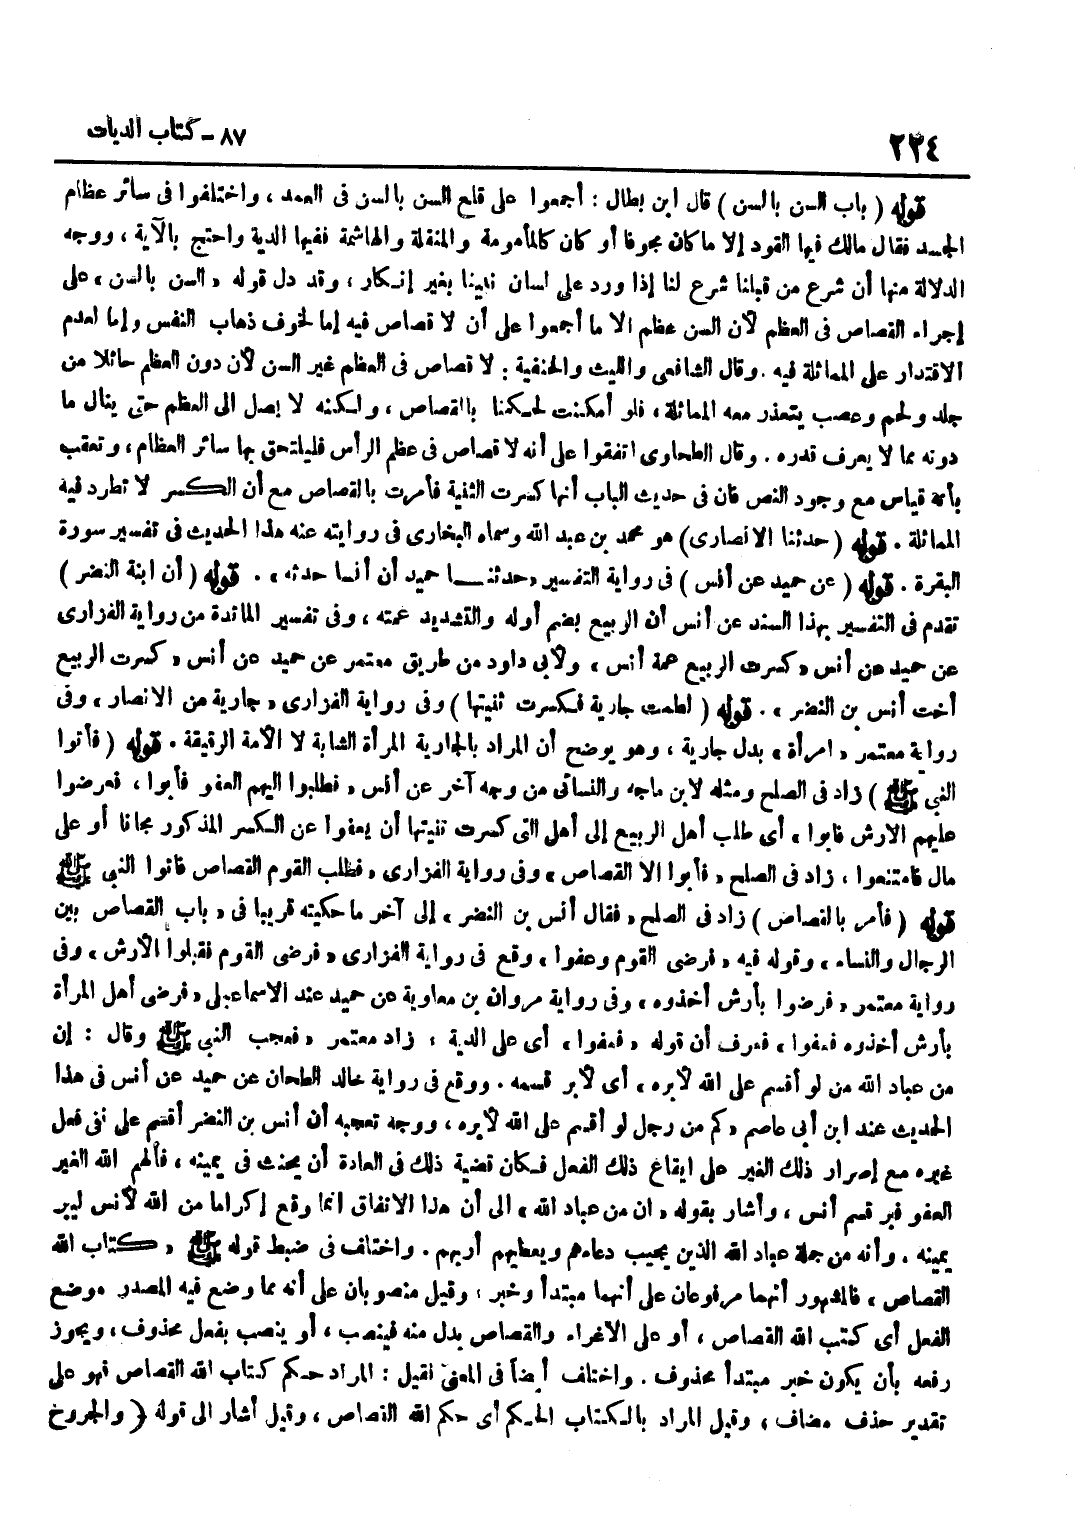 ٢٢٤
٨٧ - كتاب الديات
قوله ( باب السن بالسن ) قال ابن بطال : أجمعوا على قلع السن بالسن فى العمد ، واختلفوا فى سائر عظام
الجسد فقال مالك فيها القود إلا ما كان مجوفا أو كان كالمأمومة والمنقلة والهاشمة ففيها الدية واحتج بالآية ، ووجه
الدلالة منها أن شرع من قبلنا شرع لنا إذا ورد على لسان نبينا بغير إنكار ، وقد دل قوله « السن بالسن » على
إجراء القصاص فى العظم لأن السن عظم الا ما أجمعوا على أن لا قصاص فيه إما لخوف ذهاب النفس وإما لعدم
الاقتدار على المماثلة فيه . وقال الشافعى والليث والحنفية : لا قصاص فى العظم غير السن لأن دون العظم حائلا من
جلد ولحم وعصب يتعذر معه المماثلة ، فلو أمكنت لحكمنا بالقصاص ، ولكنه لا يصل الى العظم حتى ينال ما
دونه مما لا يعرف قدره . وقال الطحاوى اتفقوا على أنه لا قصاص فى عظم الرأس فليلتحق بها سائر العظام ، وتعقب
بأنه قياس مع وجود النص فان فى حديث الباب أنها كسرت الثنية فأمرت بالقصاص مع أن الكسر لا تطرد فيه
المماثلة . قوله ( حدثنا الانصارى ) هو محمد بن عبد الله وسماه البخارى فى روايته عنه هذا الحديث فى تفسير سورة
البقرة . قوله ( عن حميد عن أنس ) فى رواية التفسير « حدثنا حميد أن أنسا حدثه » . قوله ( أن ابنة النضر )
تقدم فى التفسير بهذا السند عن أنس أن الربيع بضم أوله والتشديد عمته ، وفى تفسير المائدة من رواية الفزارى
عن حميد عن أنس « كسرت الربيع عمة أنس ، ولأبى داود من طريق معتمر عن حميد عن أنس « كسرت الربيع
أخت أنس بن النضر » . قوله ( لطمت جارية فكسرت ثنيتها ) وفى رواية الفزارى « جارية من الانصار ، وفى
رواية معتمر « امرأة » بدل جارية ، وهو يوضح أن المراد بالجارية المرأة الشابة لا الأمة الرقيقة . قوله ( فأتوا
النبى ﷺ ) زاد فى الصلح ومثله لابن ماجه والنسائى من وجه آخر عن أنس « فطلبوا اليهم العفو فأبوا ، فعرضوا
عليهم الارش فابوا » أى طلب أهل الربيع إلى أهل التى كسرت ثنيتها أن يعفوا عن الكسر المذكور مجانا أو على
مال فامتنعوا ، زاد فى الصلح « فأبوا الا القصاص » وفى رواية الفزارى « فطلب القوم القصاص فاتوا النبى ﷺ
قوله ( فأمر بالقصاص ) زاد فى الصلح « فقال أنس بن النضر » إلى آخر ما حكيته قريبا فى « باب القصاص بين
الرجال والنساء » وقوله فيه « فرضى القوم وعفوا » وقع فى رواية الفزارى « فرضى القوم فقبلوا الأرش » وفى
رواية معتمر « فرضوا بأرش أخذوه » وفى رواية مروان بن معاوية عن حميد عند الاسماعيلى « فرضى أهل المرأة
بأرش أخذوه فعفوا ، فعرف أن قوله « فعفوا » أى على الدية ، زاد معتمر « فعجب النبى ﷺ وقال : إن
من عباد الله من لو أقسم على الله لأبره » أى لأبر قسمه . ووقع فى رواية خالد الطحان عن حميد عن أنس فى هذا
الحديث عند ابن أبى عاصم « كم من رجل لو أقسم على الله لأبره » ووجه تعجبه أن أنس بن النضر أقسم على نفى فعل
غيره مع إصرار ذلك الغير على ايقاع ذلك الفعل فكان قضية ذلك فى العادة أن يحنث فى يمينه ، فألهم الله الغير
العفو فبر قسم أنس ، وأشار بقوله « ان من عباد الله » الى أن هذا الاتفاق انما وقع إكراما من الله لأنس ليبر
يمينه . وأنه من جملة عباد الله الذين يجيب دعاءهم ويعطيهم أربهم . واختلف فى ضبط قوله ﷺ « كتاب الله
القصاص » فالمشهور أنهما مرفوعان على أنهما مبتدأ وخبر ، وقيل منصوبان على أنه مما وضع فيه المصدر موضع
الفعل أى كتب الله القصاص ، أو على الاغراء والقصاص بدل منه فينصب ، أو ينصب بفعل محذوف ، ويجوز
رفعه بأن يكون خبر مبتدأ محذوف . واختلف أيضاً فى المعنى فقيل : المراد حكم كتاب الله القصاص فهو على
تقدير حذف مضاف ، وقيل المراد بالكتاب الحكم أى حكم الله القصاص ، وقيل أشار الى قوله ( والجروح